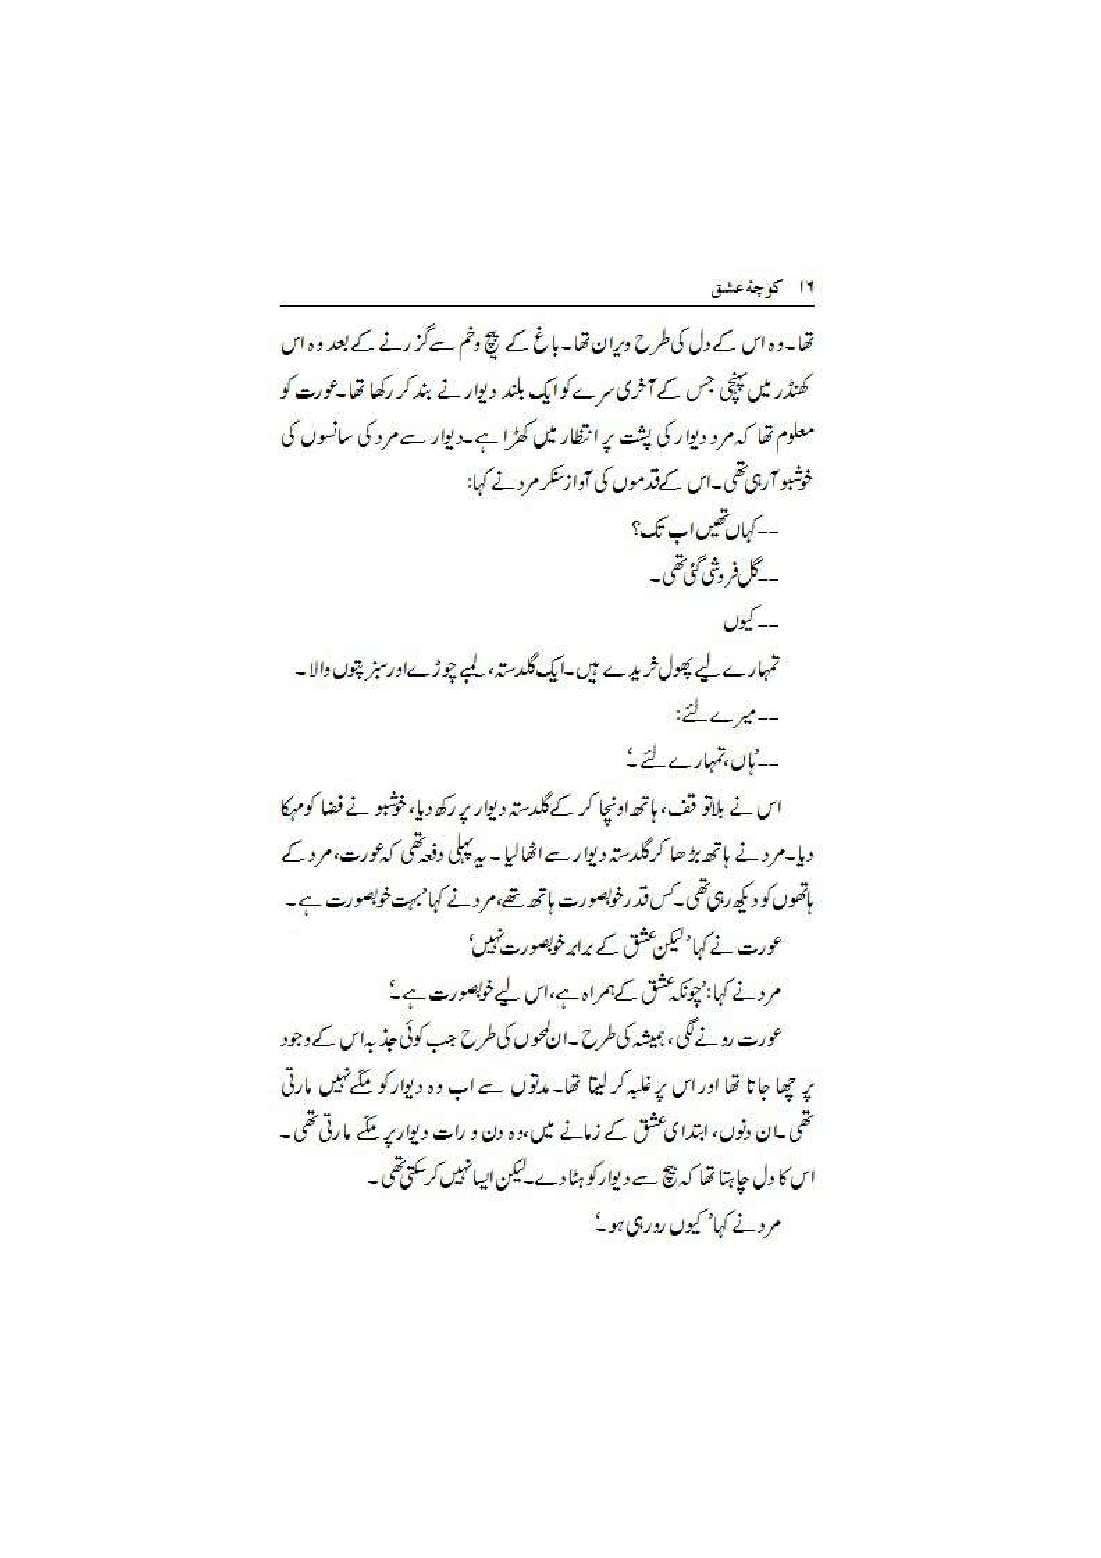 ۱۶ کوچۂ عشق
تھا۔وہ اس کے دل کی طرح ویران تھا۔باغ کے پیچ وخم سے گزرنے کے بعد وہ اس
کھنڈر میں پہنچی جس کے آخری سرے کو ایک بلند دیوار نے بند کر رکھا تھا۔عورت کو
معلوم تھا کہ مرد دیوار کی پشت پر انتظار میں کھڑا ہے۔دیوار سے مرد کی سانسوں کی
خوشبو آرہی تھی۔اس کے قدموں کی آواز سنکر مرد نے کہا:
--کہاں تھیں اب تک؟
--گل فروشی گئی تھی۔
--کیوں
تمہارے لیے پھول خریدے ہیں۔ایک گلدستہ، لمبے چوڑے اور سبز پتوں والا۔
--میرے لئے:
--’ہاں،تمہارے لئے۔‘
اس نے بلاتوقف، ہاتھ اونچا کر کے گلدستہ دیوار پر رکھ دیا، خوشبو نے فضا کو مہکا
دیا۔مرد نے ہاتھ بڑھا کر گلدستہ دیوار سے اٹھا لیا۔ یہ پہلی دفعہ تھی کہ عورت، مرد کے
ہاتھوں کو دیکھ رہی تھی۔کس قدر خوبصورت ہاتھ تھے،مرد نے کہا’بہت خوبصورت ہے۔
عورت نے کہا’ لیکن عشق کے برابر خوبصورت نہیں‘
مرد نے کہا:’چونکہ عشق کے ہمراہ ہے،اس لیے خوبصورت ہے۔‘
عورت رونے لگی، ہمیشہ کی طرح۔ان لمحوں کی طرح جب کوئی جذبہ اس کے وجود
پر چھا جاتا تھا اور اس پر غلبہ کر لیتا تھا۔ مدتوں سے اب وہ دیوار کو مکّے نہیں مارتی
تھی۔ان دنوں، ابتدای عشق کے زمانے میں،وہ دن و رات دیوار پر مکّے مارتی تھی۔
اس کا دل چاہتا تھا کہ بیچ سے دیوار کو ہٹا دے۔لیکن ایسا نہیں کر سکتی تھی۔
مرد نے کہا’ کیوں رو رہی ہو۔‘